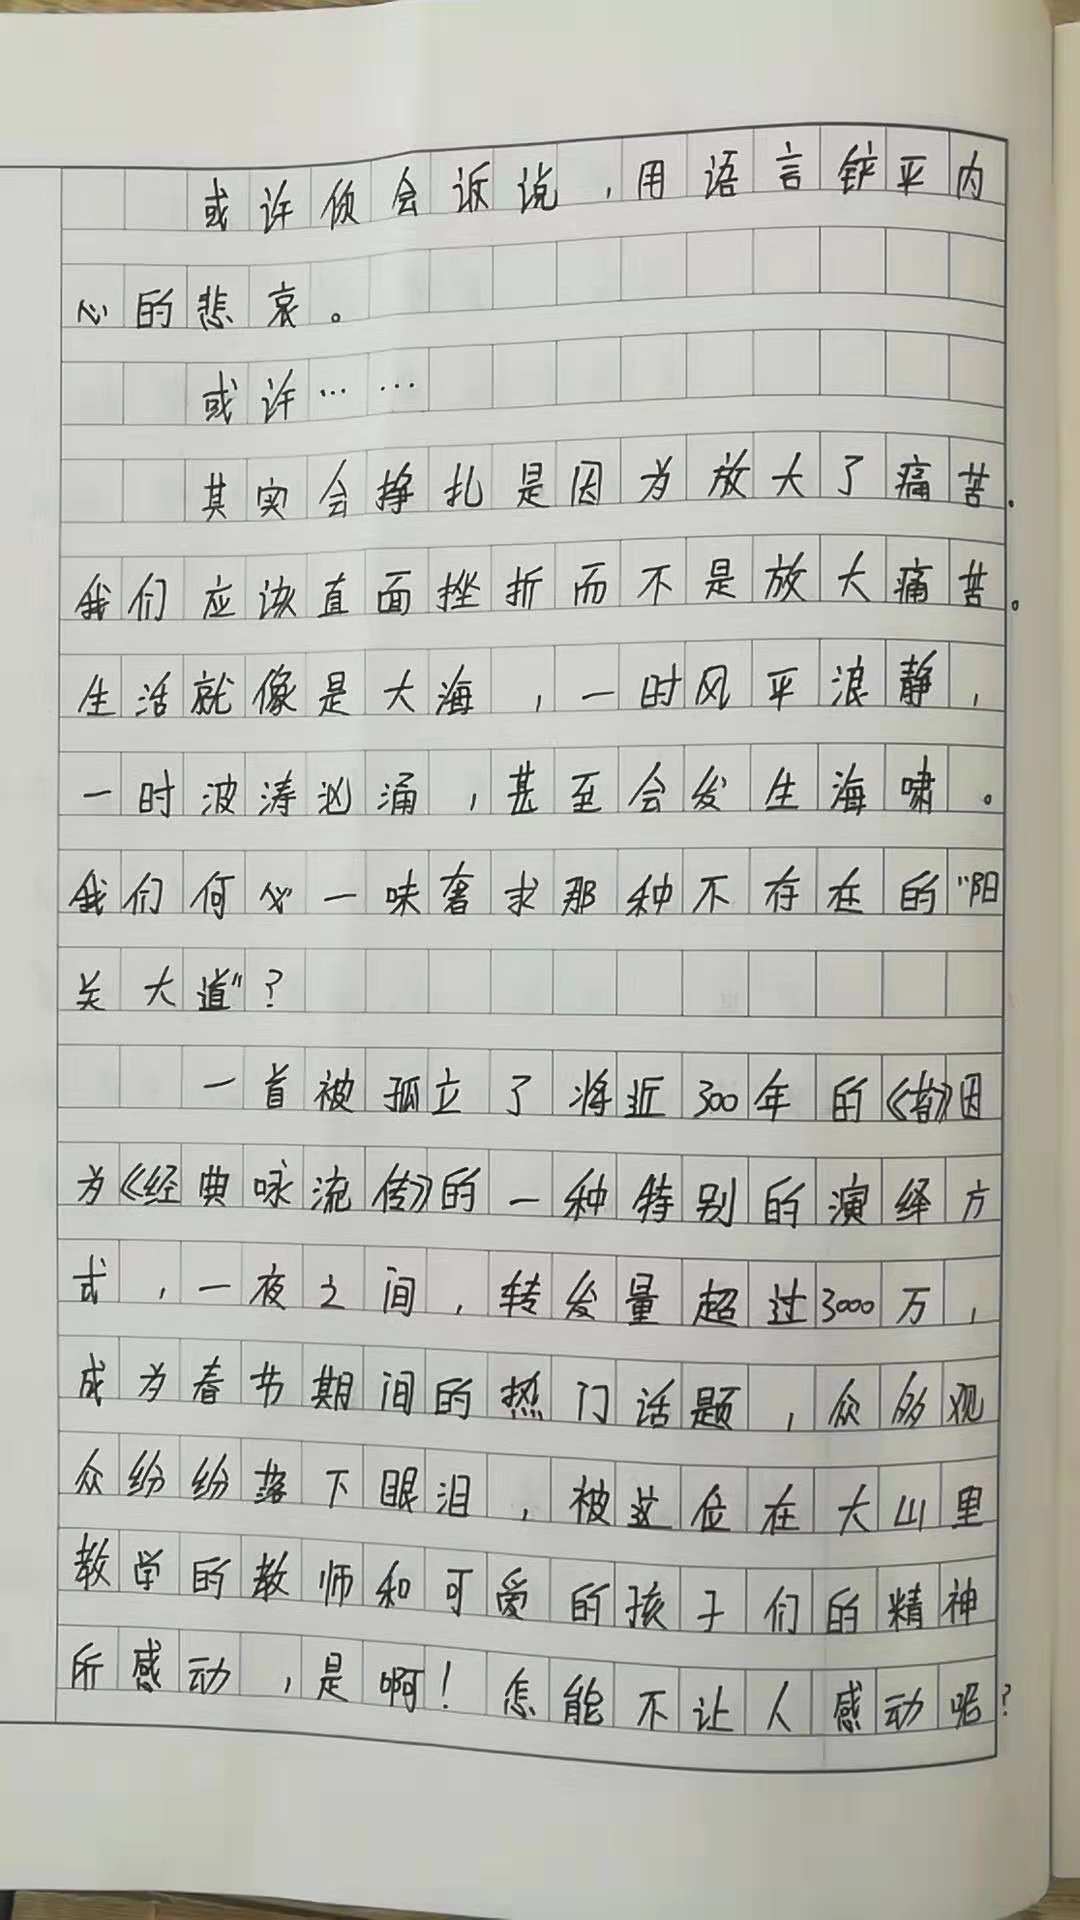 或许你会诉说，用语言铲平内
心的悲哀。
或许……
其实会挣扎是因为放大了痛苦.
我们应该直面挫折而不是放大痛苦。
生活就像是大海，一时风平浪静，
一时波涛汹涌，甚至会发生海啸。
我们何必一味奢求那种不存在的“阳
关大道”？
一首被孤立了将近300年的《苔》因
为《经典咏流传》的一种特别的演绎方
式，一夜之间，转发量超过3000万，
成为春节期间的热门话题，众多观
众纷纷落下眼泪，被这位在大山里
教学的教师和可爱的孩子们的精神
所感动，是啊！怎能不让人感动呢？